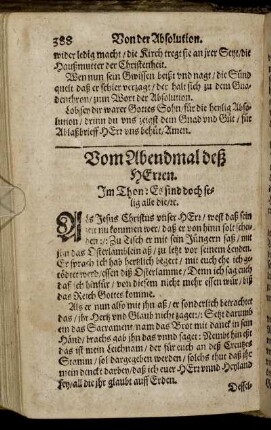 388 Von der Absolution.
wider ledig macht / die Kirch tregt sie an jrer Seyt / die
Haußmutter der Christenheit.
Wen nun sein Gwissen beißt vnd nagt / die Sünd
quelt daß er schier verzagt / der halt sich zu dem Gna-
denthron / zum Wort der Absolution.
Lob sey dir warer Gottes Sohn / für die heylig Abso-
lution / drinn du vns zeigst dein Gnad vnd Güt / für
Ablaßbrieff HErr vns behüt / Amen.
Vom Abendmal deß
HErren.
Im Thon: Es sind doch se-
lig alle die / rc.
ALs Jesus Christus vnser HErr / west daß sein
zeit nu kommen wer / daß er von hinn solt schei-
den :/: Zu Tisch er mit sein Jüngern saß / mit
jhn das Osterlamblein aß / zu letzt vor seinem Leyden.
Er sprach ich hab hertzlich begert / mit euch ehe ich ge-
tödtet werd / essen diß Osterlamme / Denn ich sag euch
daß ich hinfür / von diesem nicht mehr essen wür / biß
das Reich Gottes komme.
Als er nun also mit jhn aß / er sonderlich betrachtet
das / jhr Hertz vnd Glaub nicht zage :/: Setzt darumb
ein das Sacrament nam das Brot mit danck in sein
Händ / brachs gab jhn das vnnd saget: Nembt hin eßt
das ist mein Leichnam / der für euch an deß Creutzes
Stamm / sol dargegeben werden / solchs thut daß jhr
mein danckt darbey / daß ich euer HErr vnnd Heyland
sey / all die jhr glaubt auff Erden.
Dessel-